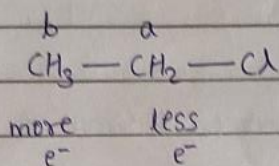 b a
CH₃ — CH₂ — Cl
more less
e⁻ e⁻